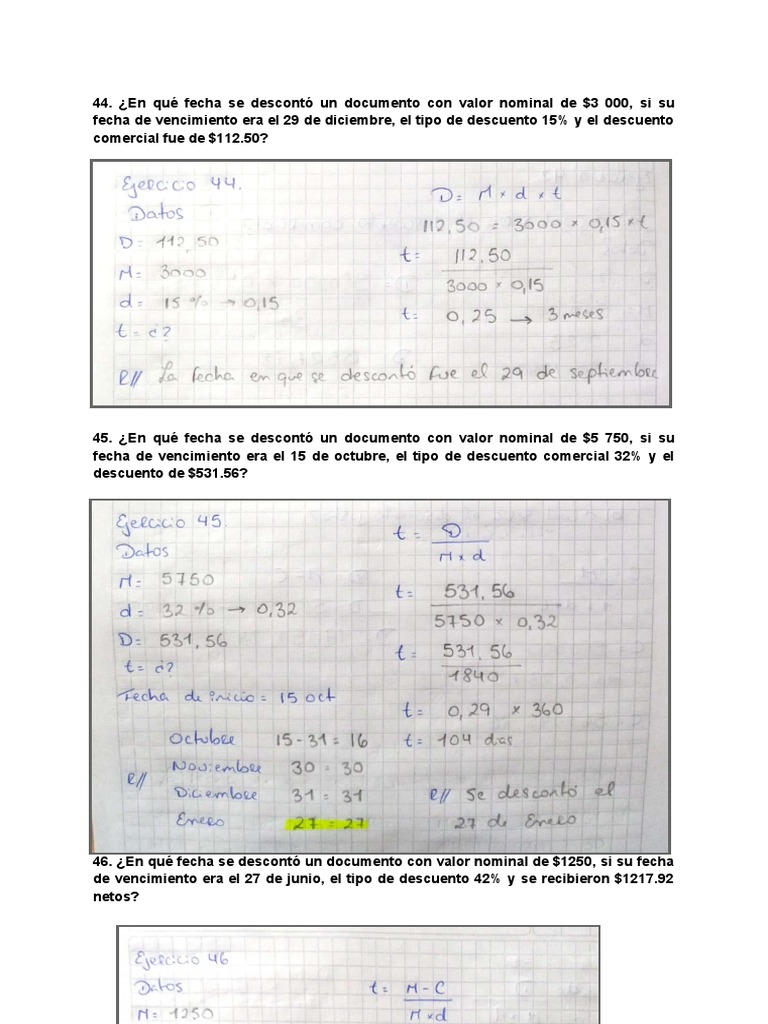 44. ¿En qué fecha se descontó un documento con valor nominal de $3 000, si su
fecha de vencimiento era el 29 de diciembre, el tipo de descuento 15% y el descuento
comercial fue de $112.50?
Ejercicio 44.
Datos
D= 112,50
M= 3000
d= 15 % → 0,15
t= ¿?
D= M × d × t
112,50 = 3000 × 0,15 × t
t= 112,50
3000 × 0,15
t= 0,25 → 3 meses
R// La fecha en que se descontó fue el 29 de septiembre
45. ¿En qué fecha se descontó un documento con valor nominal de $5 750, si su
fecha de vencimiento era el 15 de octubre, el tipo de descuento comercial 32% y el
descuento de $531.56?
Ejercicio 45.
Datos
M= 5750
d= 32 % → 0,32
D= 531,56
t= ¿?
Fecha de inicio = 15 oct
Octubre 15-31 = 16
Noviembre 30 = 30
R//
Diciembre 31 = 31
Enero 27 = 27
t= D
M × d
t= 531,56
5750 × 0,32
t= 531,56
1840
t= 0,29 × 360
t= 104 dias
R// Se descontó el
27 de Enero
46. ¿En qué fecha se descontó un documento con valor nominal de $1250, si su fecha
de vencimiento era el 27 de junio, el tipo de descuento 42% y se recibieron $1217.92
netos?
Ejercicio 46
Datos
M= 1250
t= M-C
M×d